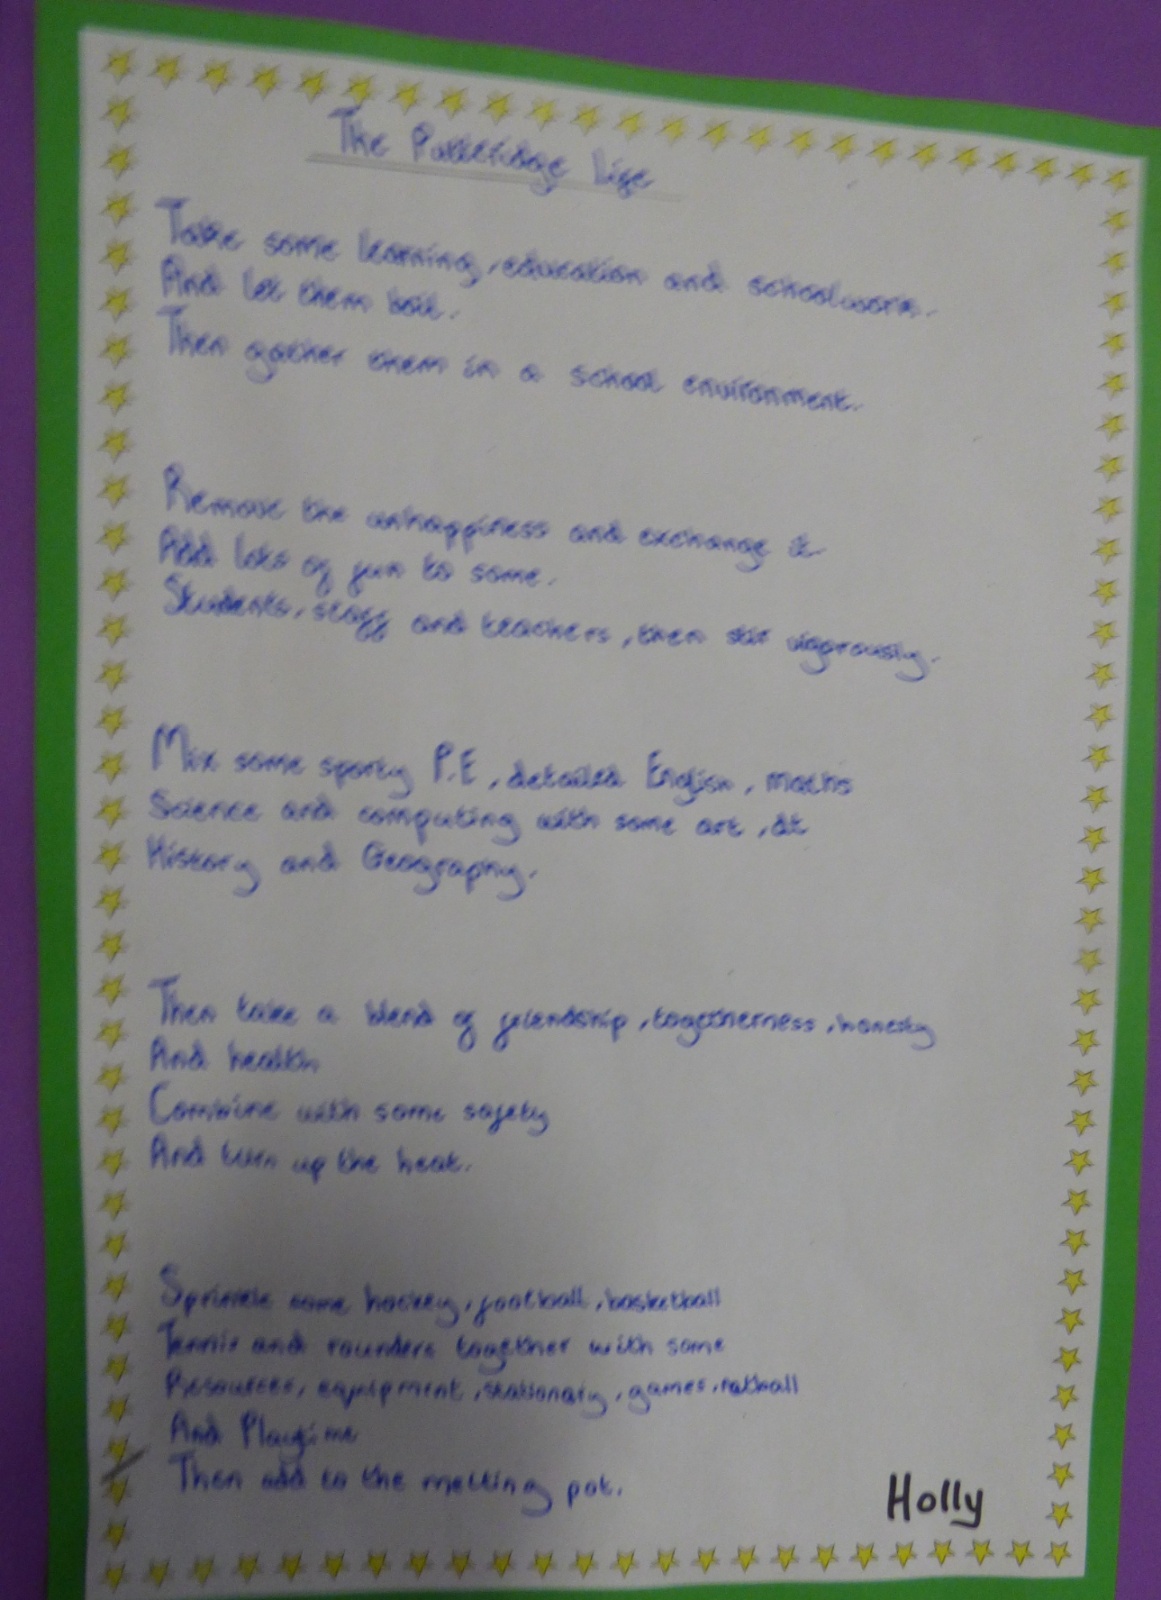 The Life
Take some learning, education and schoolwork.
And let them boil.
Then gather them in a school environment.
Remove the unhappiness and exchange it
Add lots of fun to some.
Students, staff and teachers, then stir vigrously.
Mix some sporty P.E, detailed English, maths
Science and computing with some art, dt
History and Geography.
Then take a blend of friendship, togetherness, honesty
And health
Combine with some safety
And turn up the heat.
Sprinkle some hockey, football, basketball
Tennis and rounders together with some
Resources, equipment, stationary, games, netball
And Playtime
Then add to the melting pot.
Holly